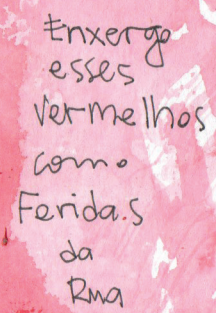 Enxergo
esses
vermelhos
como
Feridas
da
Rua